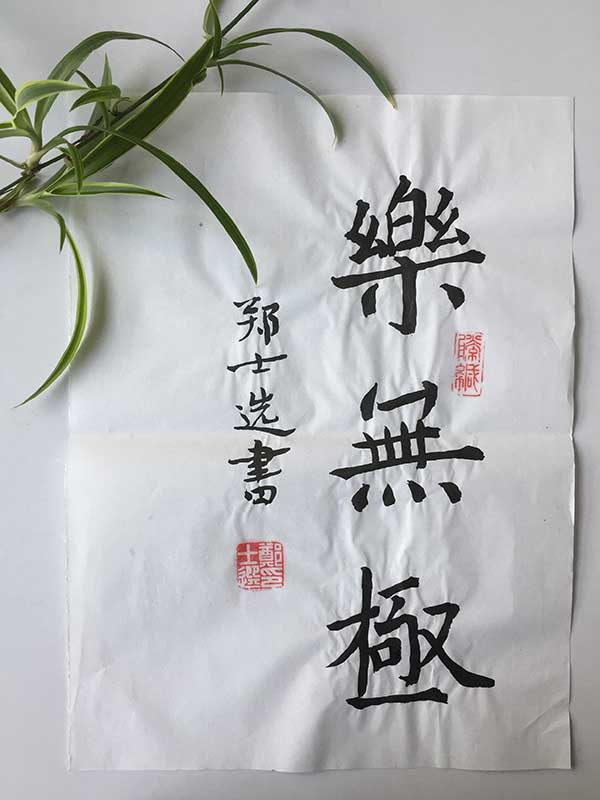 樂無極
郑士选書
鄭士選印